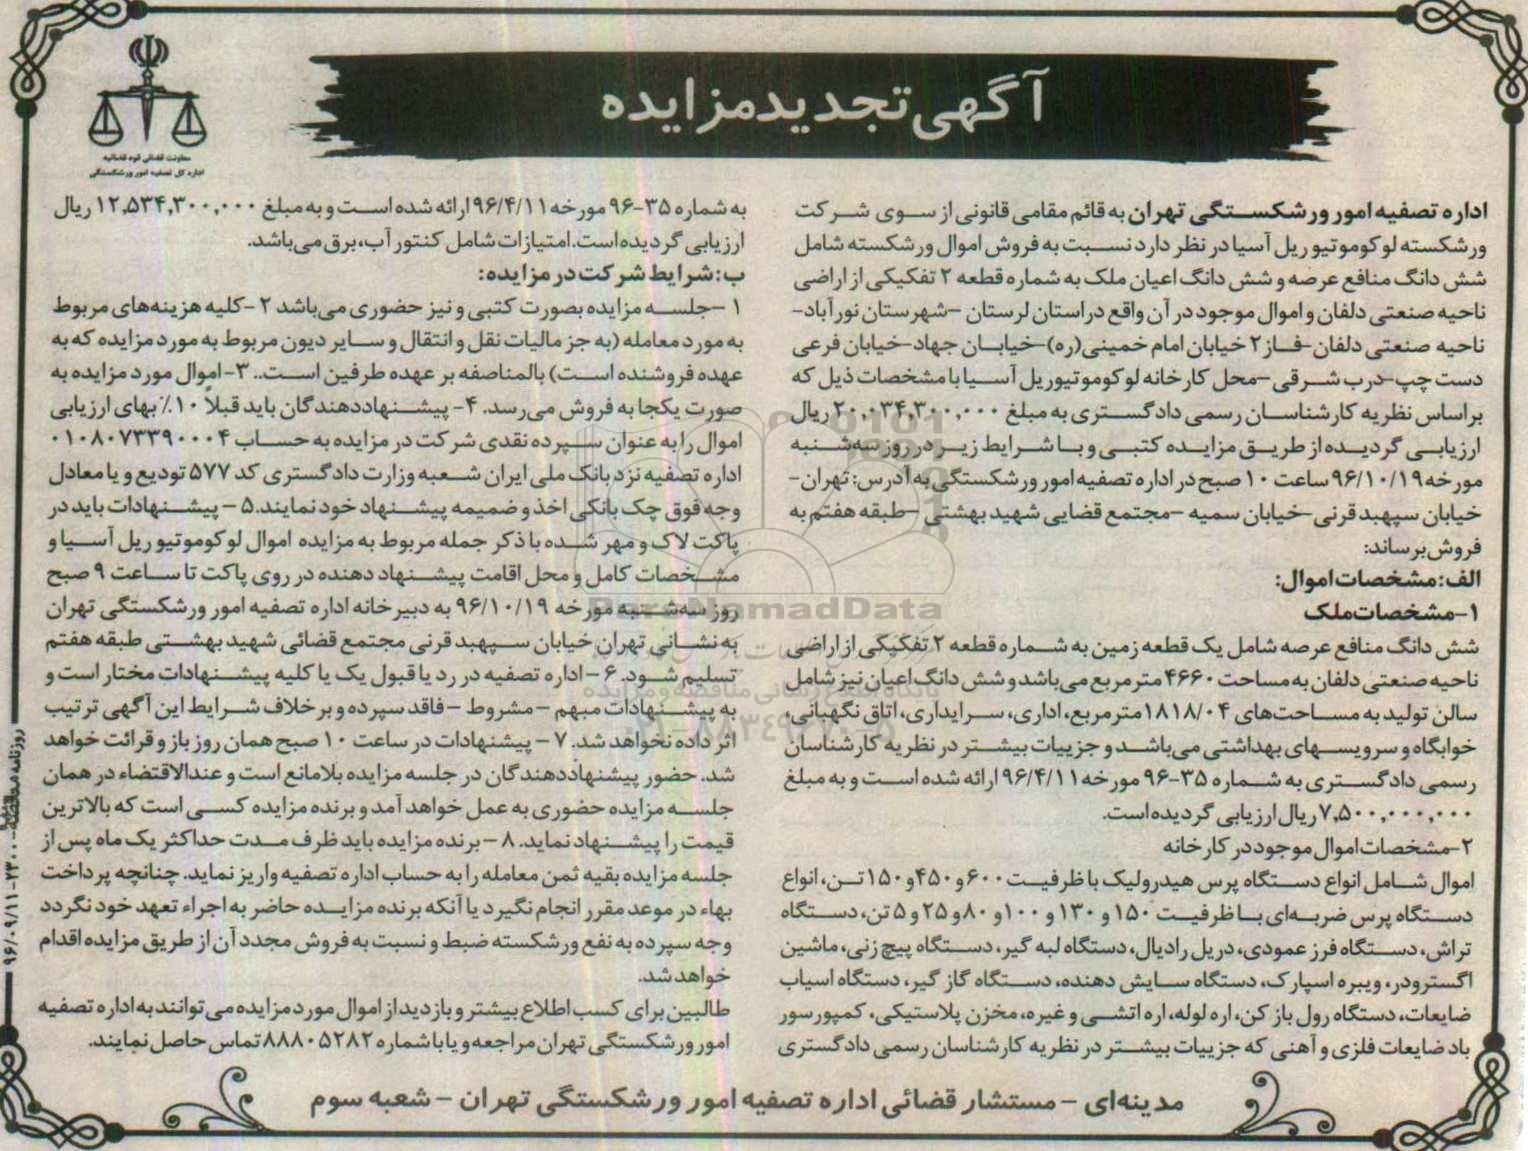 آگهی تجدید مزایده
معاونت قضائی قوه قضائیه
اداره کل تصفیه امور ورشکستگی
اداره تصفیه امور ورشکستگی تهران به قائم مقامی قانونی از سوی شرکت
ورشکسته لوکوموتیو ریل آسیا در نظر دارد نسبت به فروش اموال ورشکسته شامل
شش دانگ منافع عرصه و شش دانگ اعیان ملک به شماره قطعه ۲ تفکیکی از اراضی
ناحیه صنعتی دلفان و اموال موجود در آن واقع در استان لرستان -شهرستان نورآباد-
ناحیه صنعتی دلفان-فاز ۲ خیابان امام خمینی(ره)-خیابان جهاد-خیابان فرعی
دست چپ-درب شرقی-محل کارخانه لوکوموتیوریل آسیا با مشخصات ذیل که
براساس نظریه کارشناسان رسمی دادگستری به مبلغ ۲۰,۰۳۴,۳۰۰,۰۰۰ ریال
ارزیابی گردیده از طریق مزایده کتبی و با شرایط زیر در روز سه‌شنبه
مورخه ۹۶/۱۰/۱۹ ساعت ۱۰ صبح در اداره تصفیه امور ورشکستگی به آدرس: تهران-
خیابان سپهبد قرنی-خیابان سمیه -مجتمع قضایی شهید بهشتی -طبقه هفتم به
فروش برساند:
الف: مشخصات اموال:
۱-مشخصات ملک
شش دانگ منافع عرصه شامل یک قطعه زمین به شماره قطعه ۲ تفکیکی از اراضی
ناحیه صنعتی دلفان به مساحت ۴۶۶۰ مترمربع می‌باشد و شش دانگ اعیان نیز شامل
سالن تولید به مساحت‌های ۱۸۱۸/۰۴ مترمربع، اداری، سرایداری، اتاق نگهبانی،
خوابگاه و سرویسهای بهداشتی می‌باشد و جزییات بیشتر در نظریه کارشناسان
رسمی دادگستری به شماره ۳۵-۹۶ مورخه ۹۶/۴/۱۱ ارائه شده است و به مبلغ
۷,۵۰۰,۰۰۰,۰۰۰ ریال ارزیابی گردیده است.
۲-مشخصات اموال موجود در کارخانه
اموال شامل انواع دستگاه پرس هیدرولیک با ظرفیت ۶۰۰ و ۴۵۰ و ۱۵۰ تن، انواع
دستگاه پرس ضربه‌ای با ظرفیت ۱۵۰ و ۱۳۰ و ۱۰۰ و ۸۰ و ۲۵ و ۵ تن، دستگاه
تراش، دستگاه فرز عمودی، دریل رادیال، دستگاه لبه گیر، دستگاه پیچ زنی، ماشین
اگسترودر، ویبره اسپارک، دستگاه سایش دهنده، دستگاه گاز گیر، دستگاه اسیاب
ضایعات، دستگاه رول باز کن، اره لوله، اره اتشی و غیره، مخزن پلاستیکی، کمپورسور
باد ضایعات فلزی و آهنی که جزییات بیشتر در نظریه کارشناسان رسمی دادگستری
به شماره ۳۵-۹۶ مورخه ۹۶/۴/۱۱ ارائه شده است و به مبلغ ۱۲,۵۳۴,۳۰۰,۰۰۰ ریال
ارزیابی گردیده است. امتیازات شامل کنتور آب، برق می‌باشد.
ب: شرایط شرکت در مزایده:
۱ -جلسه مزایده بصورت کتبی و نیز حضوری می‌باشد ۲ -کلیه هزینه‌های مربوط
به مورد معامله (به جز مالیات نقل و انتقال و سایر دیون مربوط به مورد مزایده که به
عهده فروشنده است) بالمناصفه بر عهده طرفین است.. ۳-اموال مورد مزایده به
صورت یکجا به فروش می‌رسد. ۴- پیشنهاددهندگان باید قبلاً ۱۰٪ بهای ارزیابی
اموال را به عنوان سپرده نقدی شرکت در مزایده به حساب ۰۱۰۸۰۷۳۳۹۰۰۰۴
اداره تصفیه نزد بانک ملی ایران شعبه وزارت دادگستری کد ۵۷۷ تودیع و یا معادل
وجه فوق چک بانکی اخذ و ضمیمه پیشنهاد خود نمایند. ۵ - پیشنهادات باید در
پاکت لاک و مهر شده با ذکر جمله مربوط به مزایده اموال لوکوموتیو ریل آسیا و
مشخصات کامل و محل اقامت پیشنهاد دهنده در روی پاکت تا ساعت ۹ صبح
روز سه‌شنبه مورخه ۹۶/۱۰/۱۹ به دبیرخانه اداره تصفیه امور ورشکستگی تهران
به نشانی تهران خیابان سپهبد قرنی مجتمع قضائی شهید بهشتی طبقه هفتم
تسلیم شود. ۶ - اداره تصفیه در رد یا قبول یک یا کلیه پیشنهادات مختار است و
به پیشنهادات مبهم - مشروط - فاقد سپرده و برخلاف شرایط این آگهی ترتیب
اثر داده نخواهد شد. ۷ - پیشنهادات در ساعت ۱۰ صبح همان روز باز و قرائت خواهد
شد. حضور پیشنهاددهندگان در جلسه مزایده بلامانع است و عندالاقتضاء در همان
جلسه مزایده حضوری به عمل خواهد آمد و برنده مزایده کسی است که بالاترین
قیمت را پیشنهاد نماید. ۸ - برنده مزایده باید ظرف مدت حداکثر یک ماه پس از
جلسه مزایده بقیه ثمن معامله را به حساب اداره تصفیه واریز نماید. چنانچه پرداخت
بهاء در موعد مقرر انجام نگیرد یا آنکه برنده مزایده حاضر به اجراء تعهد خود نگردد
وجه سپرده به نفع ورشکسته ضبط و نسبت به فروش مجدد آن از طریق مزایده اقدام
خواهد شد.
طالبین برای کسب اطلاع بیشتر و بازدید از اموال مورد مزایده می توانند به اداره تصفیه
امور ورشکستگی تهران مراجعه و یا با شماره ۸۸۸۰۵۲۸۲ تماس حاصل نمایند.
مدینه‌ای - مستشار قضائی اداره تصفیه امور ورشکستگی تهران - شعبه سوم
ParsNamadData
پایگاه اطلاع رسانی مناقصه و مزایده